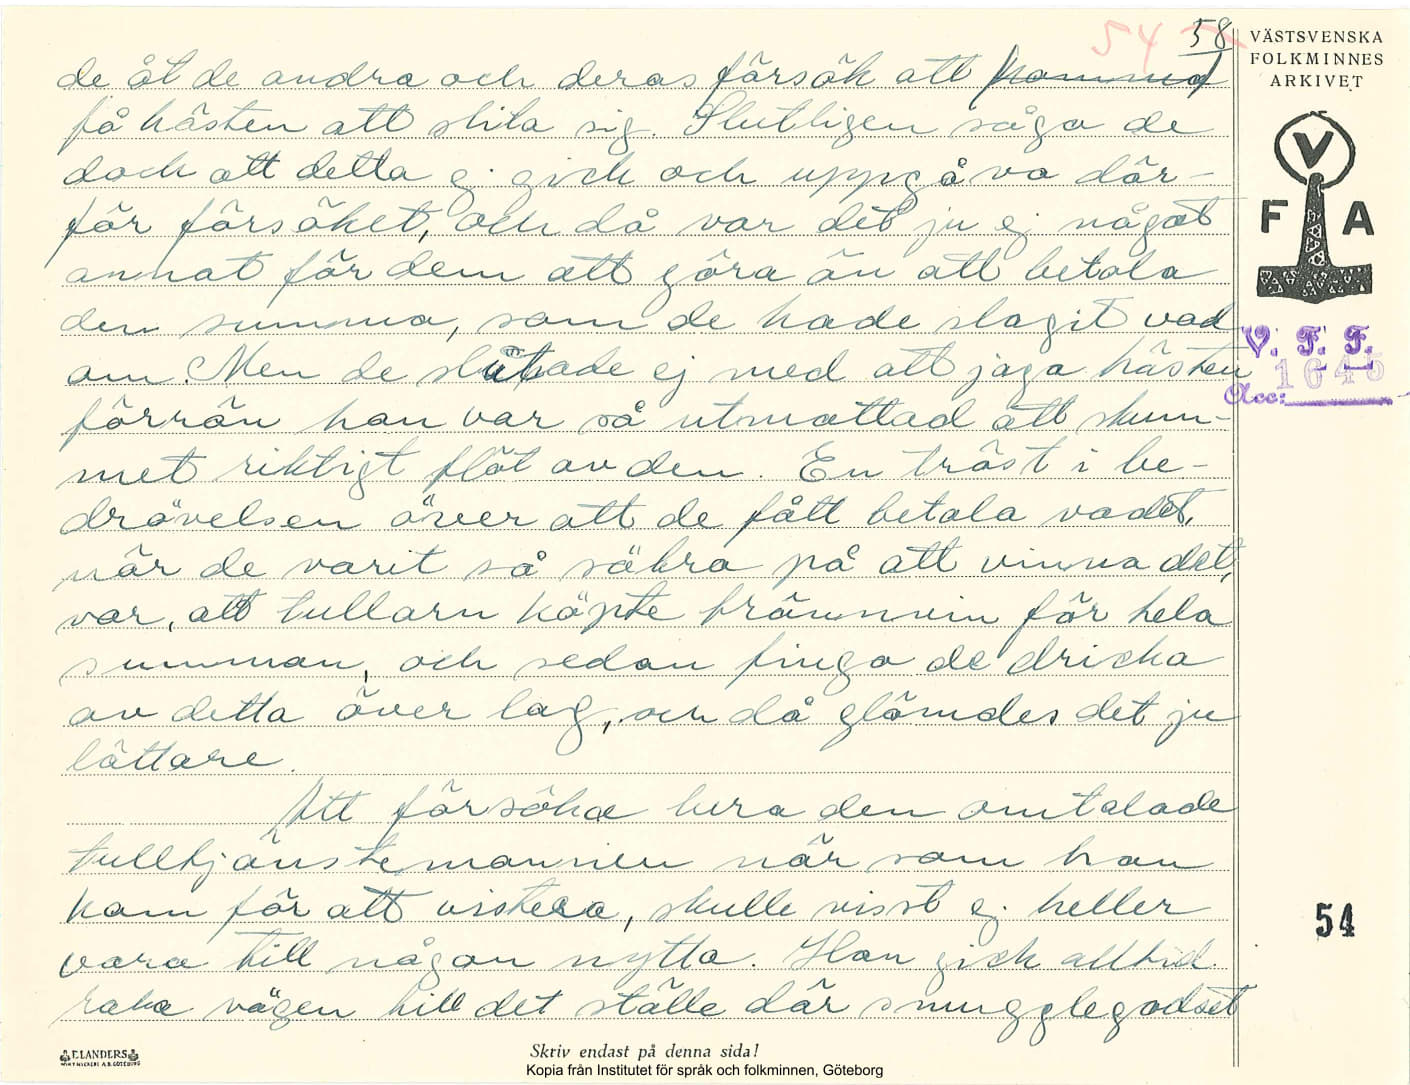 54 58
VÄSTSVENSKA
FOLKMINNES
ARKIVET
V
F A
V. F. F.
1645
Acc:
de åt de andra och deras försök att komma
få hästen att skita sig. Slutligen såga de
dock att detta ej gick och uppgåvo där-
för försöket, och då var det ju ej något
annat för dem att göra än att betala
den summa, som de hade slagit vad
om. Men de slutade ej med att jaga hästen
förrän han var så utmattad att skum-
met riktigt flöt av den. En tröst i be-
drövelsen över att de fått betala vadet,
när de varit så säkra på att vinna det,
var, att tullarn köpte brännvin för hela
summan, och sedan finga de dricka
av detta över lag, och då glömdes det ju
lättare.
Att försöka lura den omtalade
tulltjänstemannen när som han
kom för att visitera, skulle visst ej heller
vara till någon nytta. Han gick alltid
raka vägen till det ställe där smugglegodset
54
ELANDERS
BOKTRYCKERI A.B. GÖTEBORG
Skriv endast på denna sida!
Kopia från Institutet för språk och folkminnen, Göteborg